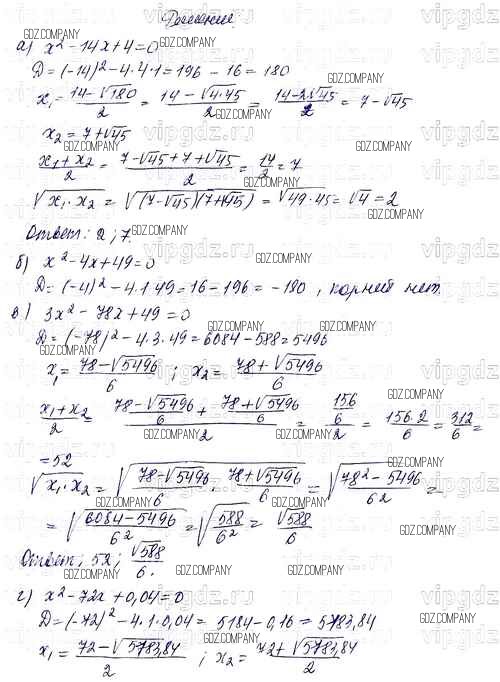 Решение.
а) x² - 14x + 4 = 0
D = (-14)² - 4·4·1 = 196 - 16 = 180
x₁ = (14 - √180)/2 = (14 - √4·45)/2 = (14 - 2√45)/2 = 7 - √45
x₂ = 7 + √45
(x₁ + x₂)/2 = (7 - √45 + 7 + √45)/2 = 14/2 = 7
√x₁·x₂ = √(7 - √45)(7 + √45) = √49·45 = √4 = 2
Ответ: 2; 7.
б) x² - 4x + 49 = 0
D = (-4)² - 4·1·49 = 16 - 196 = -180, корней нет.
в) 3x² - 78x + 49 = 0
D = (-78)² - 4·3·49 = 6084 - 588 = 5496
x₁ = (78 - √5496)/6 ; x₂ = (78 + √5496)/6
(x₁ + x₂)/2 = ((78 - √5496)/6 + (78 + √5496)/6)/2 = (156/6)/2 = 156·2/6 = 312/6 =
= 52
√x₁·x₂ = √((78 - √5496)/6 · (78 + √5496)/6) = √((78² - 5496)/6²) =
= √((6084 - 5496)/6²) = √(588/6²) = √588/6
Ответ: 52; √588/6.
г) x² - 72x + 0,04 = 0
D = (-72)² - 4·1·0,04 = 5184 - 0,16 = 5783,84
x₁ = (72 - √5783,84)/2 ; x₂ = (72 + √5783,84)/2